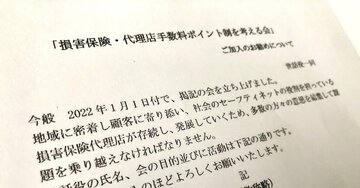 「損害保険・代理店手数料ポイント制を考える会」
ご加入のお勧めについて
世話役一同
今般 2022年1月1日付で、掲記の会を立ち上げました。
地域に密着し顧客に寄り添い、社会のセーフティネットの役割を担っている
損害保険代理店が存続し、発展していくため、多数の方々の意思を結集して課
題を乗り越えなければなりません。
役の氏名、会の目的並びに活動は下記の通りです。
のほどよろしくお願いいたします。
記